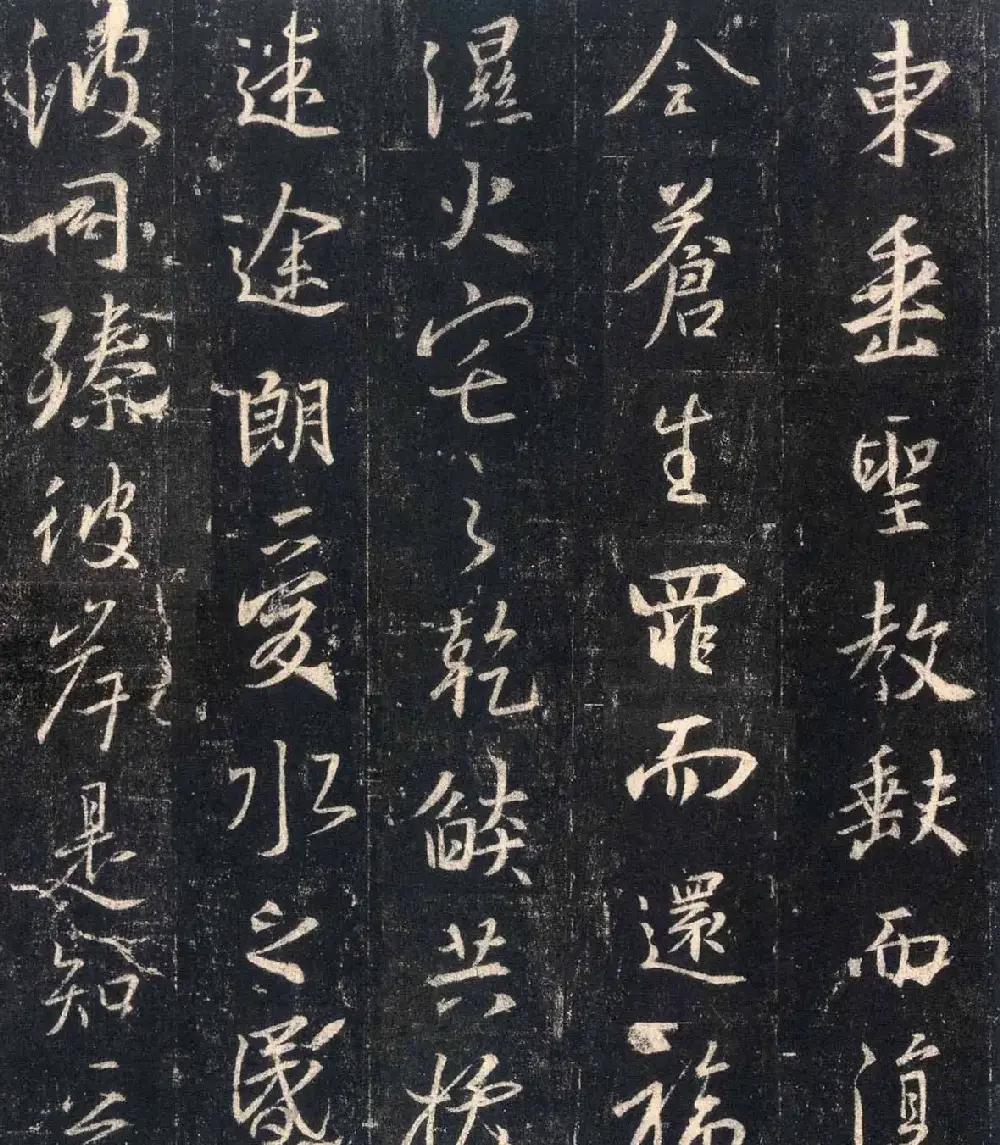 東垂聖教缺而復
全蒼生罪而還福
濕火宅之乾焰共拔
迷途朗愛水之昏
波同臻彼岸是知